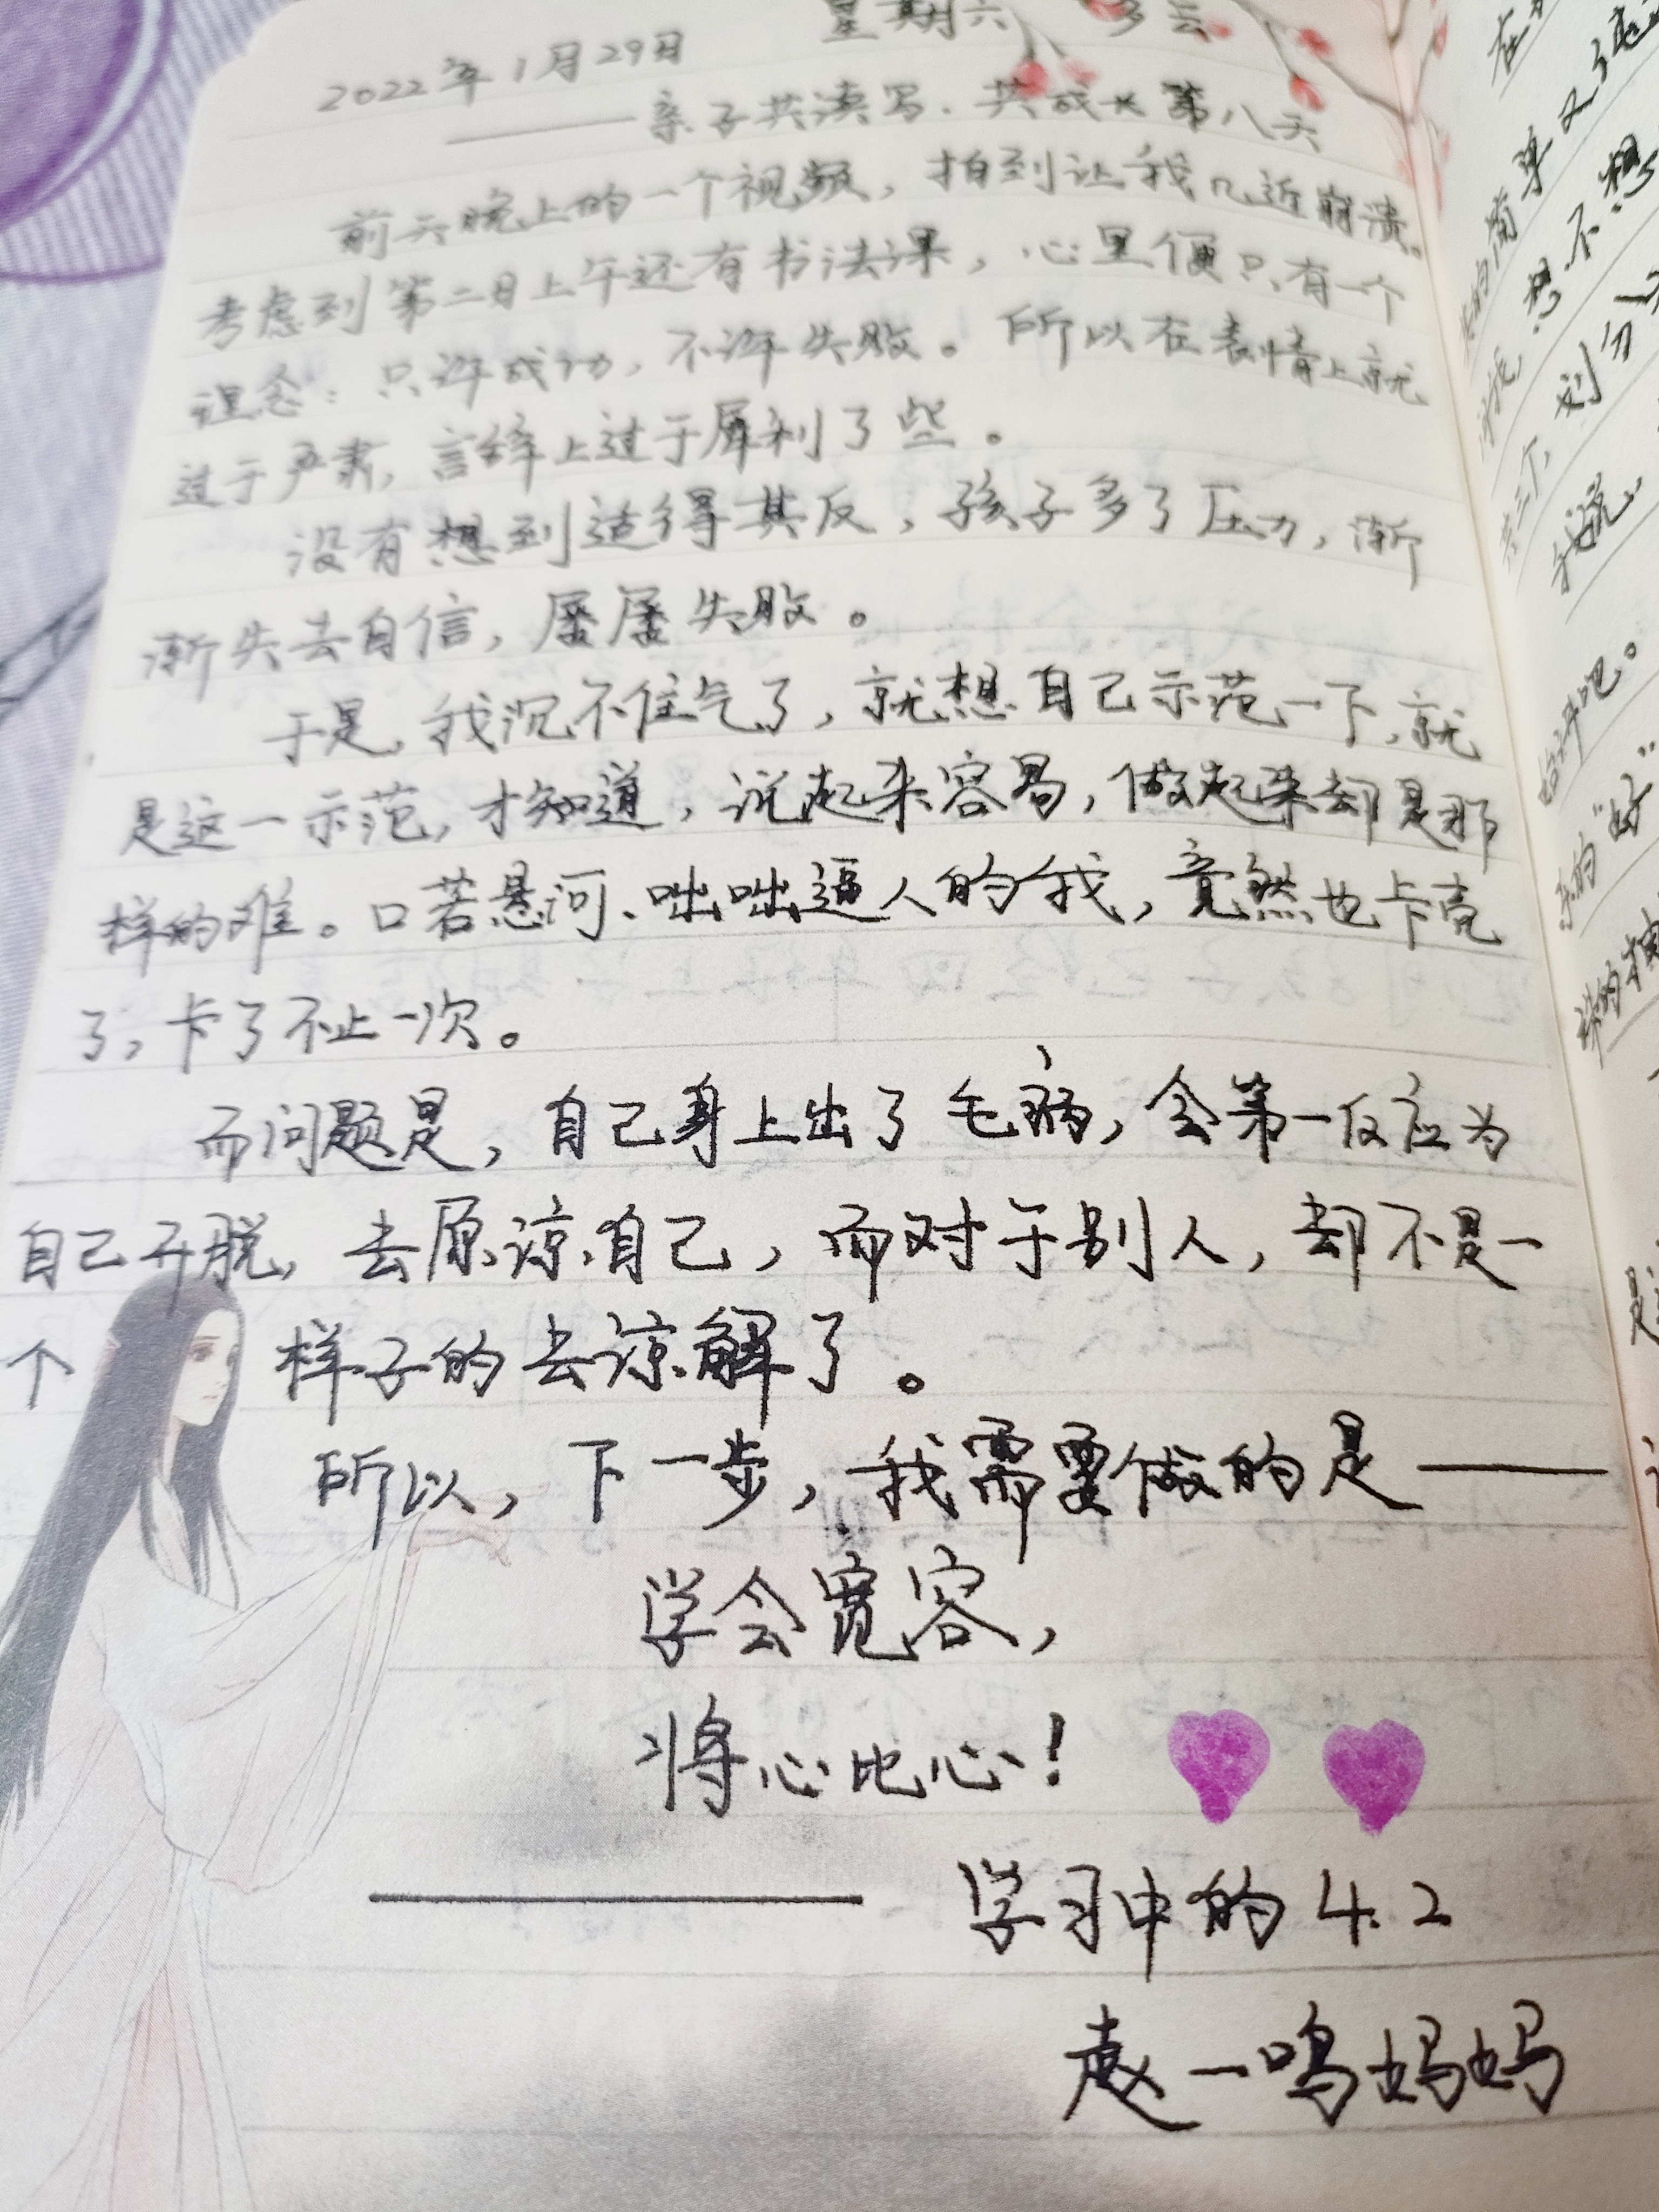 2022年1月29日 星期六 多云
——亲子共读写.共成长第八天
前天晚上的一个视频，拍到让我几近崩溃。
考虑到第二日上午还有书法课，心里便只有一个
理念：只许成功，不许失败。所以在表情上就
过于严肃，言辞上过于犀利了些。
没有想到适得其反，孩子多了压力，渐
渐失去自信，屡屡失败。
于是，我沉不住气了，就想自己示范一下，就
是这一示范，才知道，说起来容易，做起来却是那
样的难。口若悬河、咄咄逼人的我，竟然也卡壳
了，卡了不止一次。
而问题是，自己身上出了毛病，会第一反应为
自己开脱，去原谅自己，而对于别人，却不是一
个样子的去谅解了。
所以，下一步，我需要做的是——
学会宽容，
将心比心！
—— 学习中的4.2
赵一鸣妈妈
简单又
想不想
划分
我说
始评吧。
的“好”